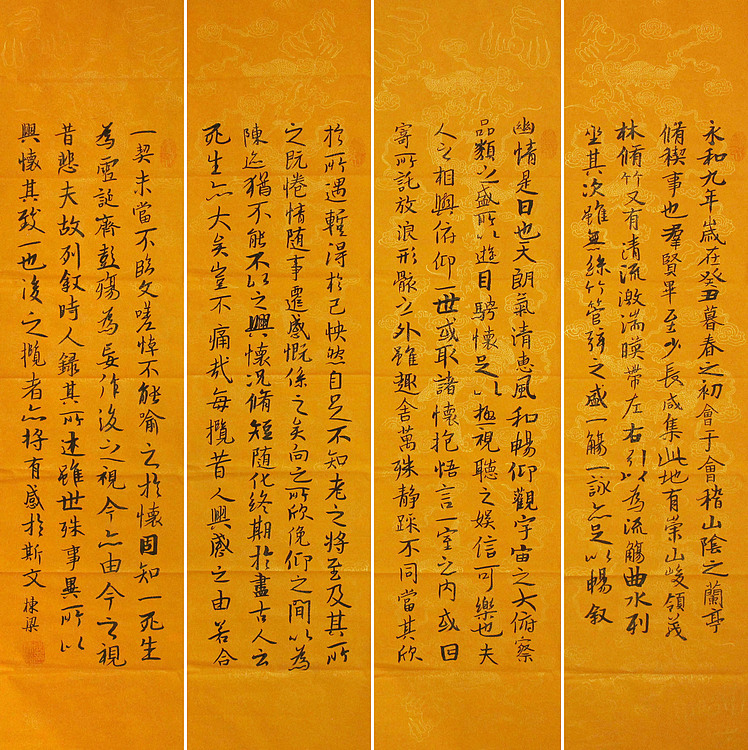 永和九年歲在癸丑暮春之初會于會稽山陰之蘭亭
脩禊事也羣賢畢至少長咸集此地有崇山峻領茂
林脩竹又有清流激湍暎帶左右引以為流觴曲水列
坐其次雖無絲竹管弦之盛一觴一詠亦足以暢叙
幽情是日也天朗氣清惠風和暢仰觀宇宙之大俯察
品類之盛所以遊目騁懷足以極視聽之娛信可樂也夫
人之相與俯仰一世或取諸懷抱悟言一室之內或因
寄所託放浪形骸之外雖趣舍萬殊静躁不同當其欣
於所遇蹔得於己怏然自足不知老之將至及其所
之既惓情随事遷感慨係之矣向之所欣俛仰之間以為
陳迹猶不能不以之興懷況脩短随化終期於盡古人云
死生亦大矣豈不痛哉每攬昔人興感之由若合
一契未嘗不臨文嗟悼不能喻之於懷固知一死生
為虛誕齊彭殤為妄作後之視今亦由今之視
昔悲夫故列叙時人録其所述雖世殊事異所以
興懷其致一也後之攬者亦將有感於斯文 棟梁